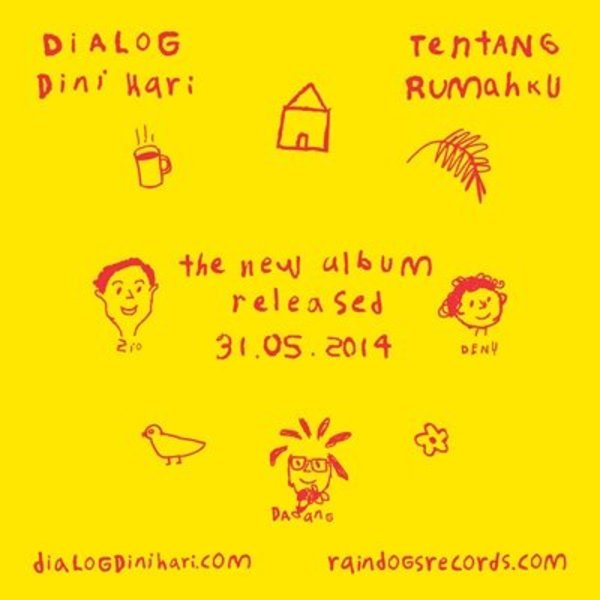 DiALOG
Dini Hari
TentANG
RUMahKU
the new album
released
31.05.2014
Zio
DENY
DAdanG
diaLOGDinihari.com
raindOGsrecords.com